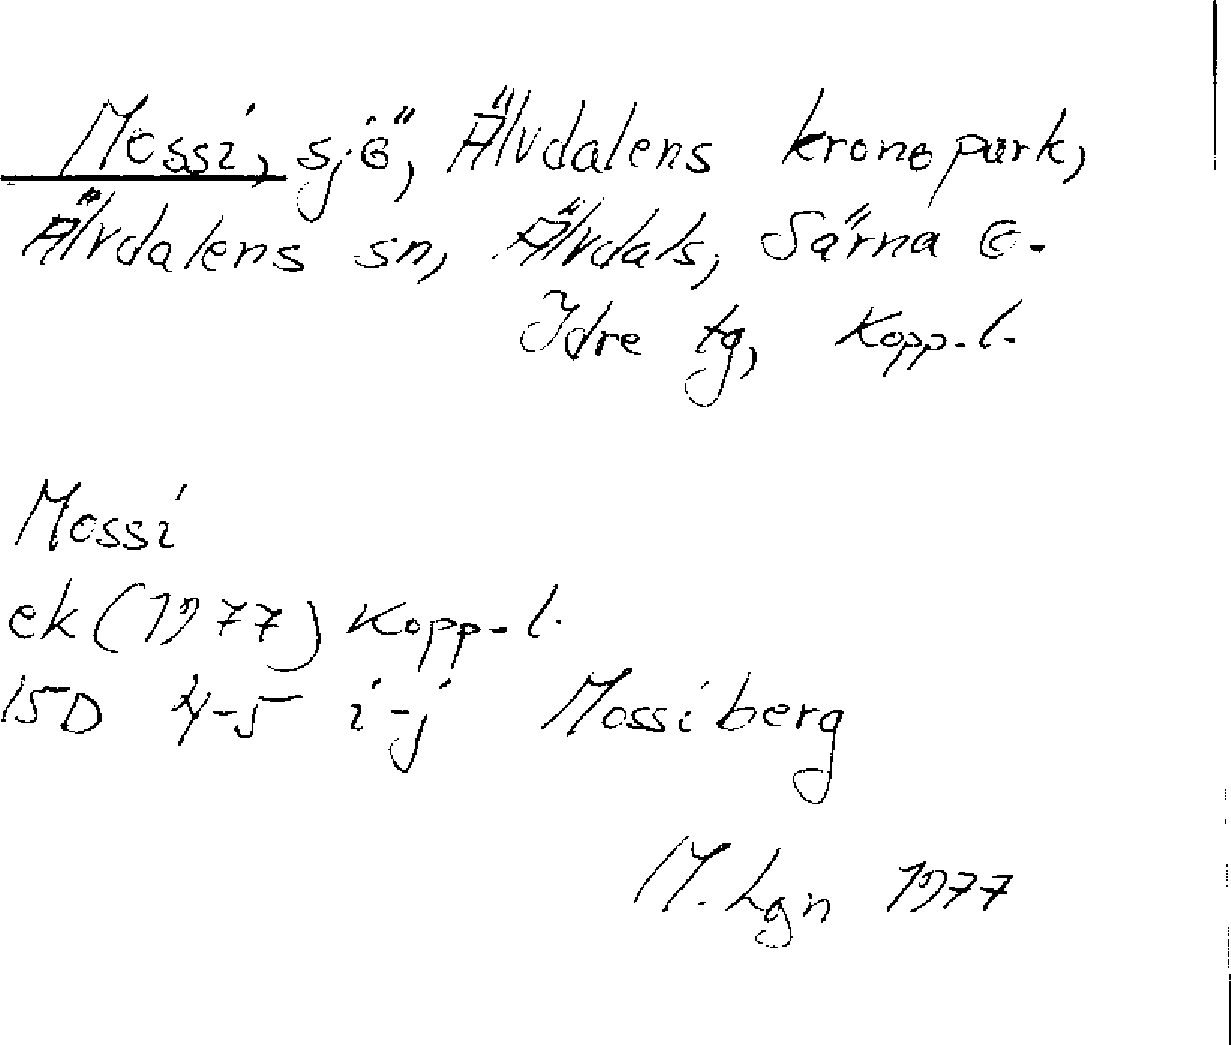 Mossi, sjö, Älvdalens kronopark,
Älvdalens sn, Älvdals, Särna o.
Idre tg, Kopp. l.
Mossi
ek (1977) Kopp. l.
15D 4-5 i-j Mossiberg
M. Lgn 1977